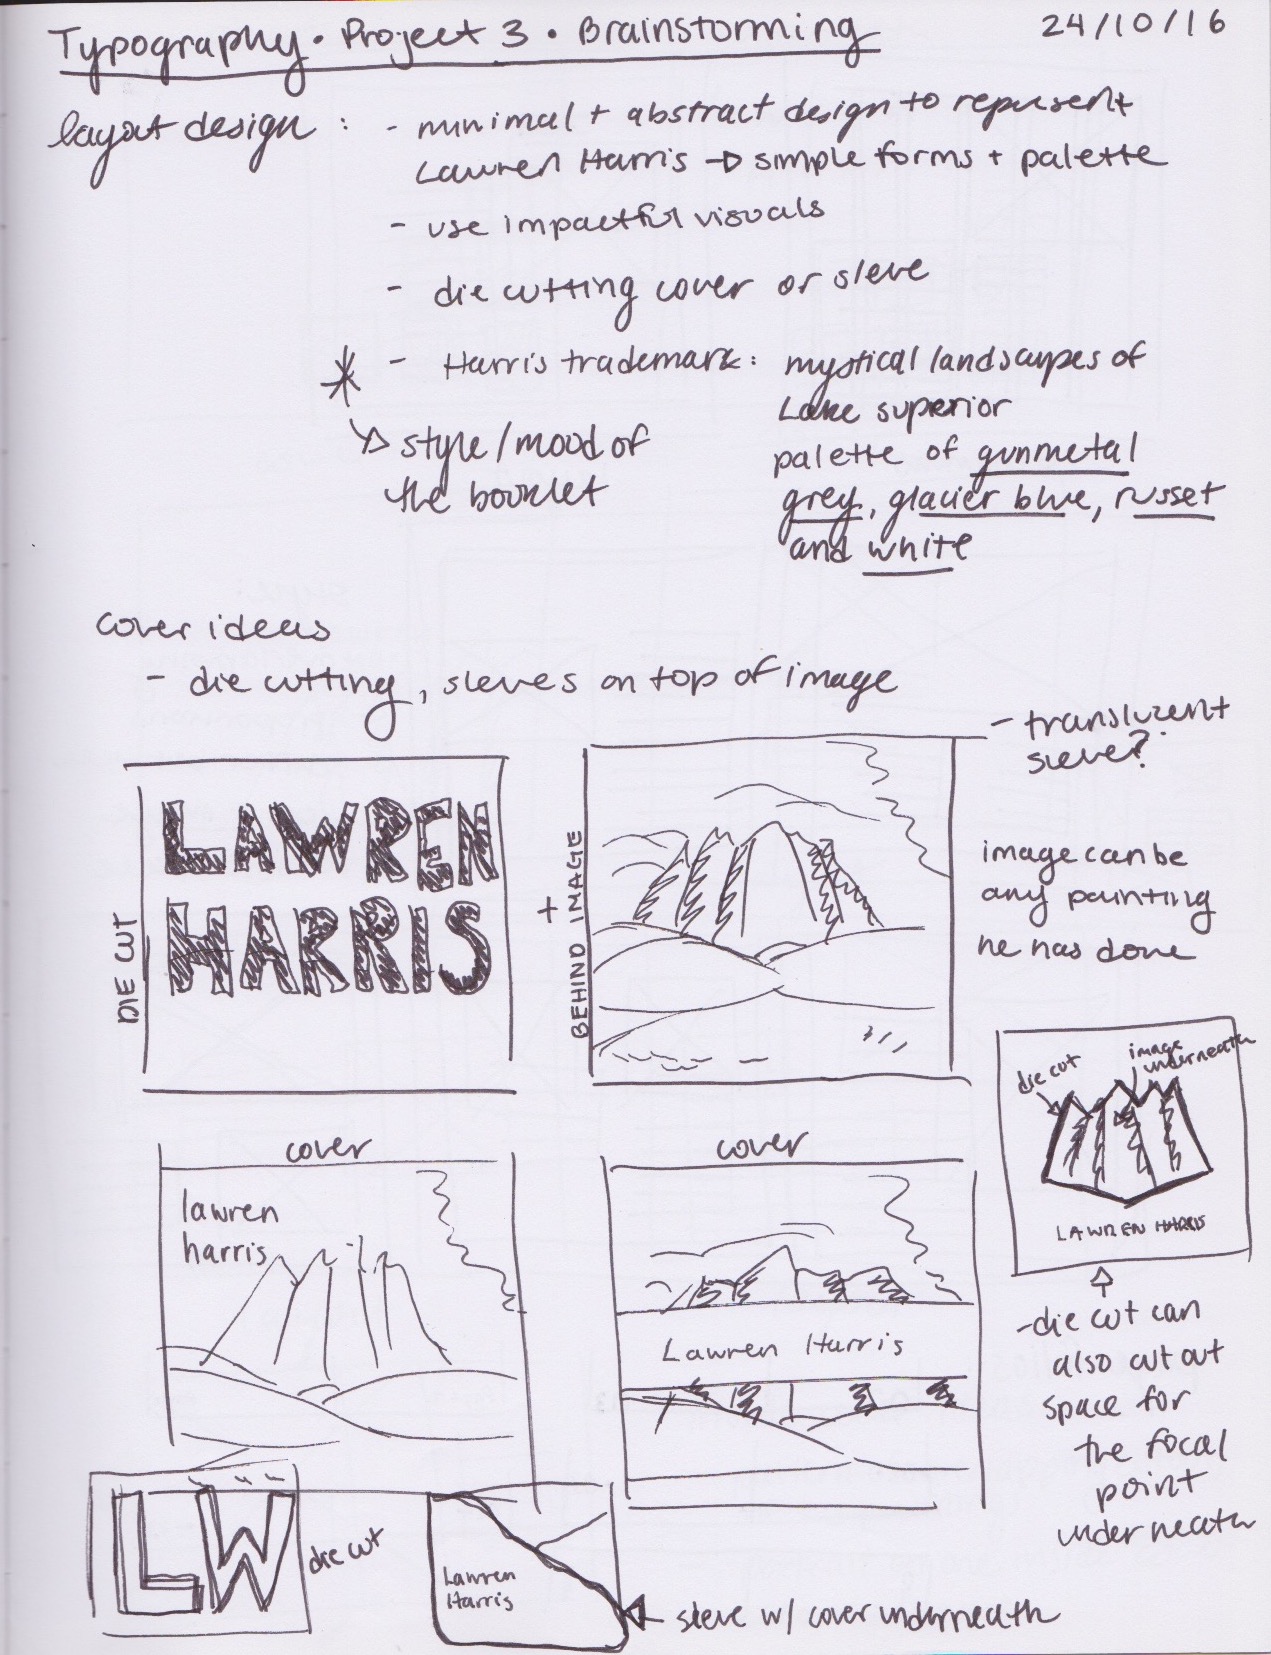 Typography • Project 3 • Brainstorming
24/10/16
layout design : - minimal + abstract design to represent
Lawren Harris → simple forms + palette
- use impactful visuals
- die cutting cover or sleve
* - Harris trademark: mystical landscapes of
Lake superior
palette of gunmetal
grey, glacier blue, russet
and white
→ style/mood of
the booklet
cover ideas
- die cutting, sleves on top of image
- translucent
sleve?
DIE CUT
LAWREN
HARRIS
+
BEHIND IMAGE
image can be
any painting
he has done
die cut
image
underneath
LAWREN HARRIS
- die cut can
also cut out
space for
the focal
point
underneath
cover
lawren
harris
cover
Lawren Harris
LW
die cut
Lawren
Harris
sleve w/ cover underneath